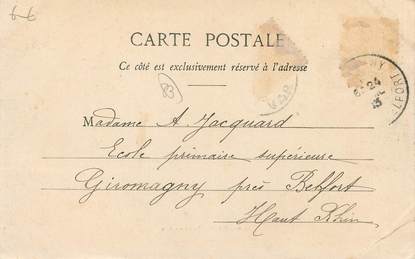 6-6
CARTE POSTALE
Ce côté est exclusivement réservé à l'adresse
VAR
24
B3
Madame A Jacquard
Ecole primaire supérieure
Giromagny près Belfort
Haut Rhin